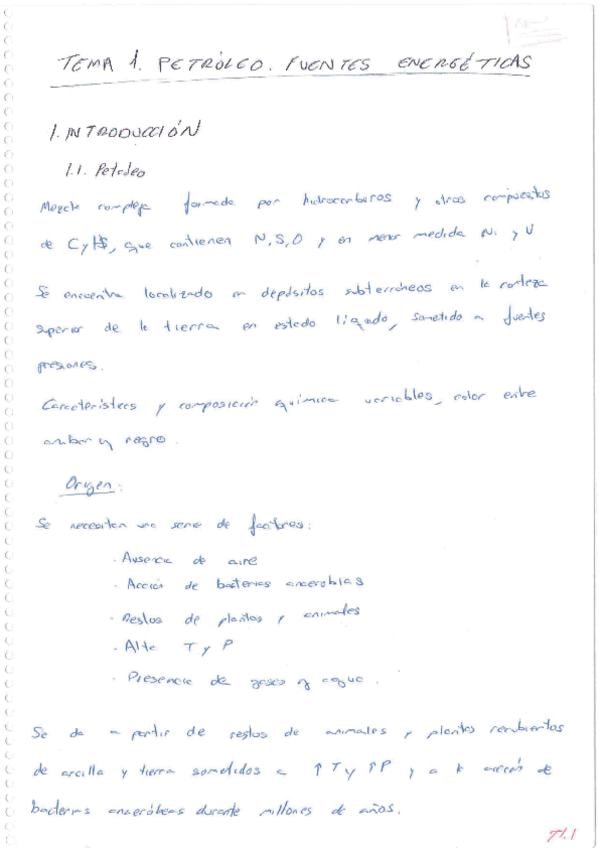 TEMA 1. PETRÓLEO. FUENTES ENERGÉTICAS
1. INTRODUCCIÓN
1.1. Petróleo
Mezcla compleja formada por hidrocarburos y otros compuestos
de C y H, que contienen N, S, O y en menor medida Ni y V
Se encuentra localizado en depósitos subterráneos en la corteza
superior de la tierra en estado líquido, sometido a fuertes
presiones.
Características y composición química variables, color entre
ambar y negro.
Origen:
Se necesitan una serie de factores:
· Ausencia de aire
· Acción de bacterias anaerobias
· Restos de plantas y animales
· Alta T y P
· Presencia de gases y agua.
Se da a partir de restos de animales y plantas recubiertos
de arcilla y tierra sometidos a ↑T y ↑P y a la acción de
bacterias anaeróbeas durante millones de años.
T1.1